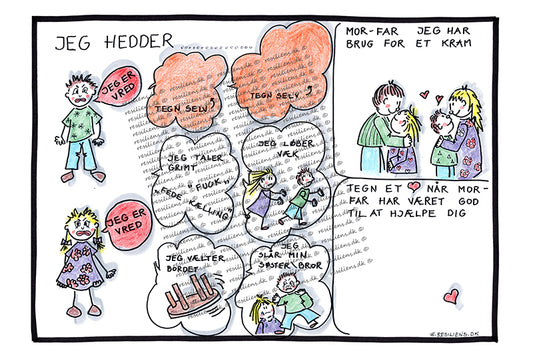 JEG HEDDER
JEG ER
VRED
TEGN SELV
TEGN SELV
JEG TALER
GRIMT
"FUCK"
"FEDE KÆLLING"
JEG LØBER
VÆK
JEG ER
VRED
JEG VÆLTER
BORDET
JEG
SLÅR MIN
SØSTER BROR
MOR-FAR JEG HAR
BRUG FOR ET KRAM
TEGN ET NÅR MOR-
FAR HAR VÆRET GOD
TIL AT HJÆLPE DIG
resiliens.dk ©